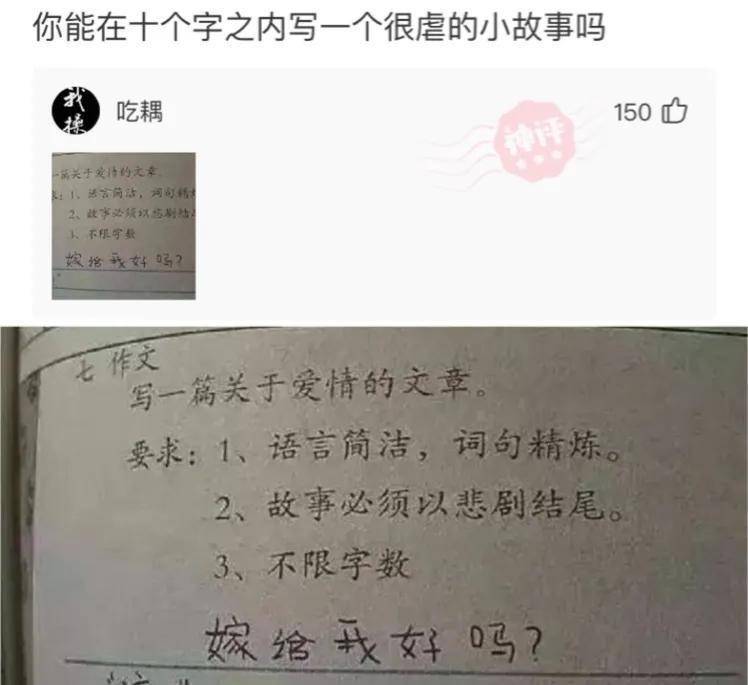 你能在十个字之内写一个很虐的小故事吗
我操
吃耦
神评
150
一篇关于爱情的文章.
1、语言简洁,词句精炼
2、故事必须以悲剧结尾
3、不限字数
嫁给我好吗?
七 作文
写一篇关于爱情的文章。
要求:1、语言简洁,词句精炼。
2、故事必须以悲剧结尾。
3、不限字数
嫁给我好吗?